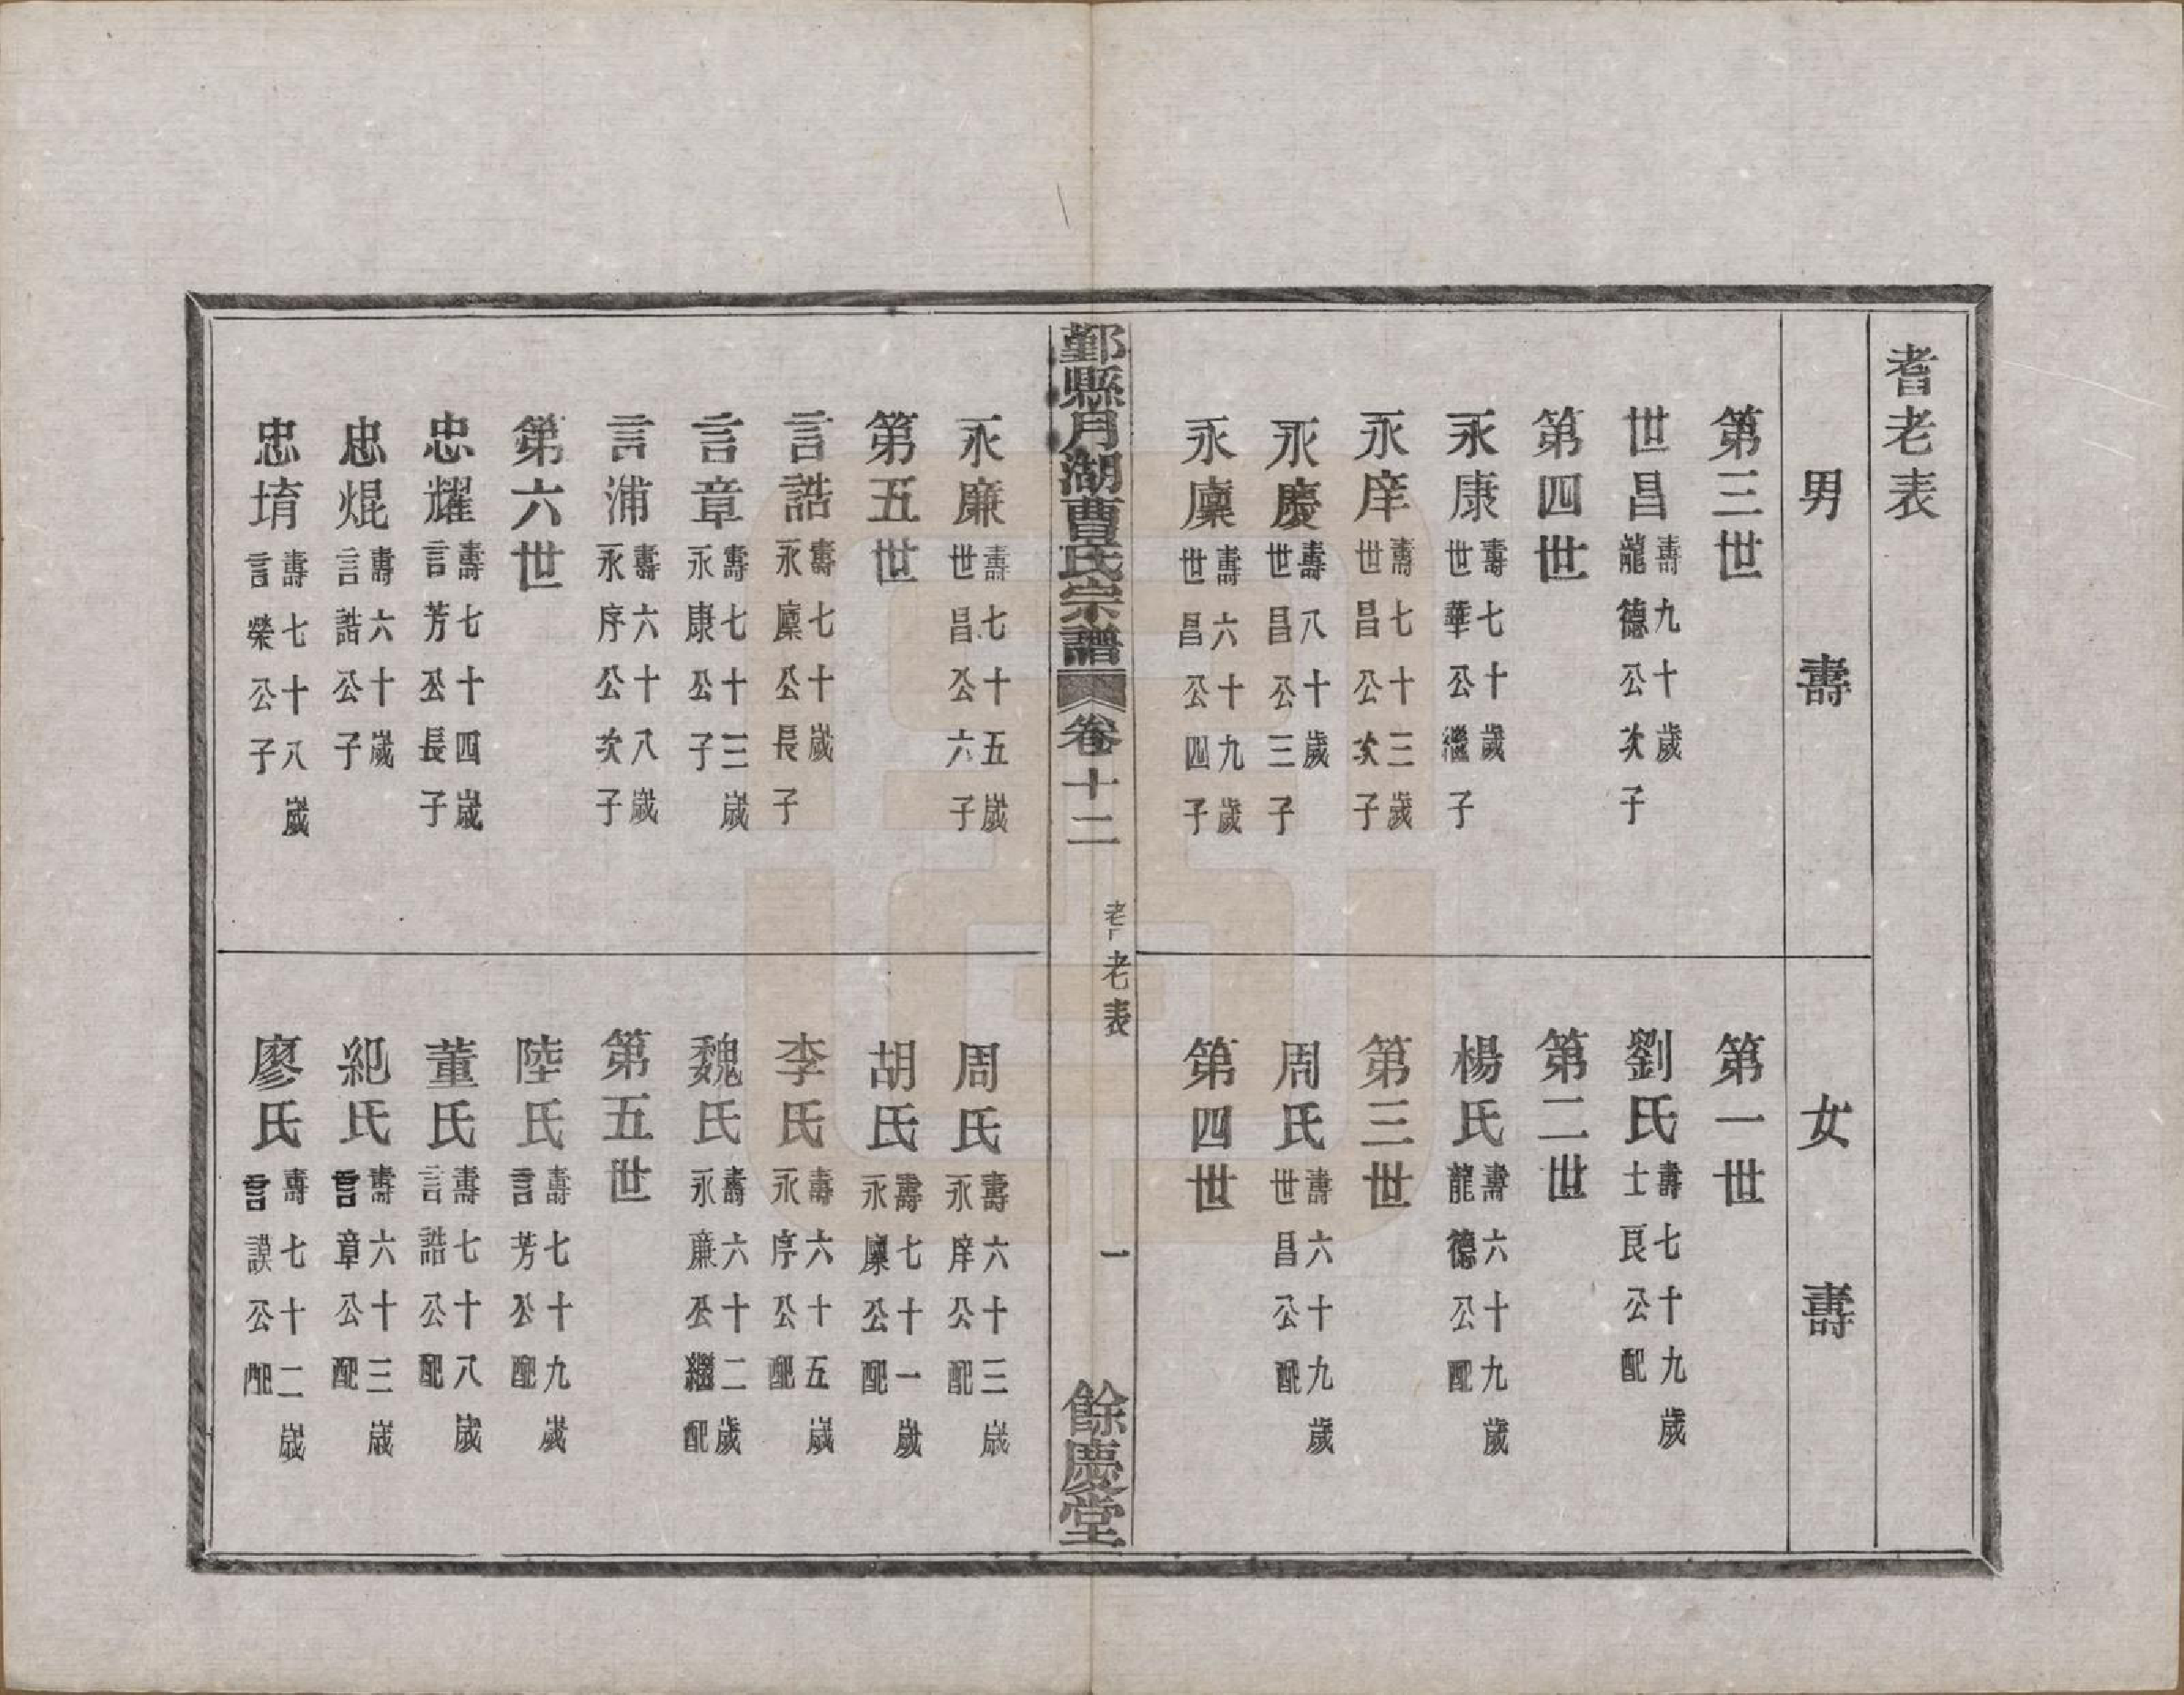 耆老表
男　壽
第三世
世昌 壽九十歲 龍德公次子
第四世
永康 壽七十歲 世華公繼子
永庠 壽七十三歲 世昌公次子
永慶 壽八十歲 世昌公三子
永廩 壽六十九歲 世昌公四子
女　壽
第一世
劉氏 壽七十九歲 士良公配
第二世
楊氏 壽六十九歲 龍德公配
第三世
周氏 壽六十九歲 世昌公配
第四世
鄞縣月湖曹氏宗譜 卷十二 耆老表 一 餘慶堂
永廉 壽七十五歲 世昌公六子
第五世
言誥 壽七十歲 永廩公長子
言章 壽七十三歲 永康公子
言浦 壽六十八歲 永序公次子
第六世
忠耀 壽七十四歲 言芳公長子
忠焜 壽六十歲 言誥公子
忠堉 壽七十八歲 言榮公子
周氏 壽六十三歲 永庠公配
胡氏 壽七十一歲 永廩公配
李氏 壽六十五歲 永序公配
魏氏 壽六十二歲 永廉公繼配
第五世
陸氏 壽七十九歲 言芳公配
董氏 壽七十八歲 言誥公配
紀氏 壽六十三歲 言章公配
廖氏 壽七十二歲 言謨公配